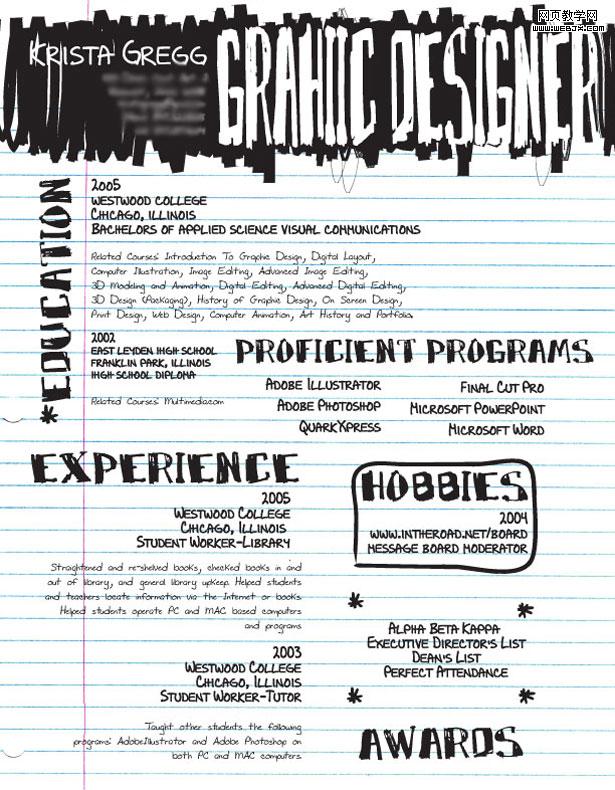 网页教学网
www.webjx.com
Krista Gregg
GRAHIIC DESIGNER
*EDUCATION
2005
Westwood College
Chicago, Illinois
Bachelors of Applied Science Visual Communications
Related Courses: Introduction To Graphic Design, Digital Layout,
Computer Illustration, Image Editing, Advanced Image Editing,
3D Modeling and Animation, Digital Editing, Advanced Digital Editing,
3D Design (Packaging), History of Graphic Design, On Screen Design,
Print Design, Web Design, Computer Animation, Art History and Portfolio.
2002
East Leyden High School
Franklin Park, Illinois
High School Diploma
Related Courses: Multimedia.com
PROFICIENT PROGRAMS
Adobe Illustrator
Adobe Photoshop
QuarkXpress
Final Cut Pro
Microsoft PowerPoint
Microsoft Word
EXPERIENCE
2005
Westwood College
Chicago, Illinois
Student Worker-Library
Straightened and re-shelved books, checked books in and
out of library, and general library upkeep. Helped students
and teachers locate information via the Internet or books.
Helped students operate PC and MAC based computers
and programs
2003
Westwood College
Chicago, Illinois
Student Worker-Tutor
Taught other students the following
programs: AdobeIllustrator and Adobe Photoshop on
both PC and MAC computers.
HOBBIES
2004
www.intheroad.net/board
Message Board Moderator
* *
Alpha Beta Kappa
Executive Director's List
Dean's List
Perfect Attendance
* *
AWARDS